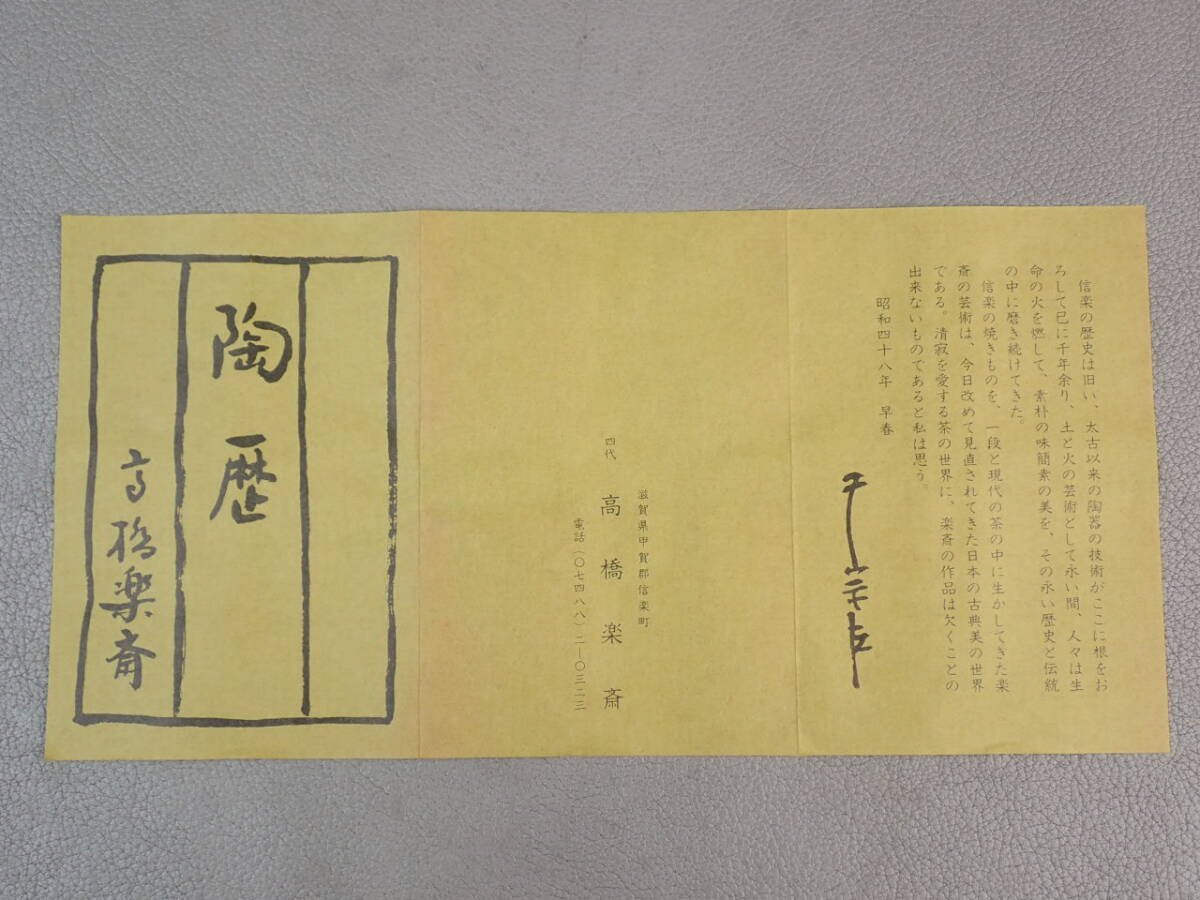 信楽の歴史は旧い、太古以来の陶器の技術がここに根をお
ろして已に千年余り、土と火の芸術として永い間、人々は生
命の火を燃して、素朴の味簡素の美を、その永い歴史と伝統
の中に磨き続けてきた。
信楽の焼きものを、一段と現代の茶の中に生かしてきた楽
斎の芸術は、今日改めて見直されてきた日本の古典美の世界
である。清寂を愛する茶の世界に、楽斎の作品は欠くことの
出来ないものであると私は思う。
昭和四十八年 早春
滋賀県甲賀郡信楽町
四代 高橋楽斎
電話(〇七四八八)二ー〇三二三
陶歴
高橋楽斎